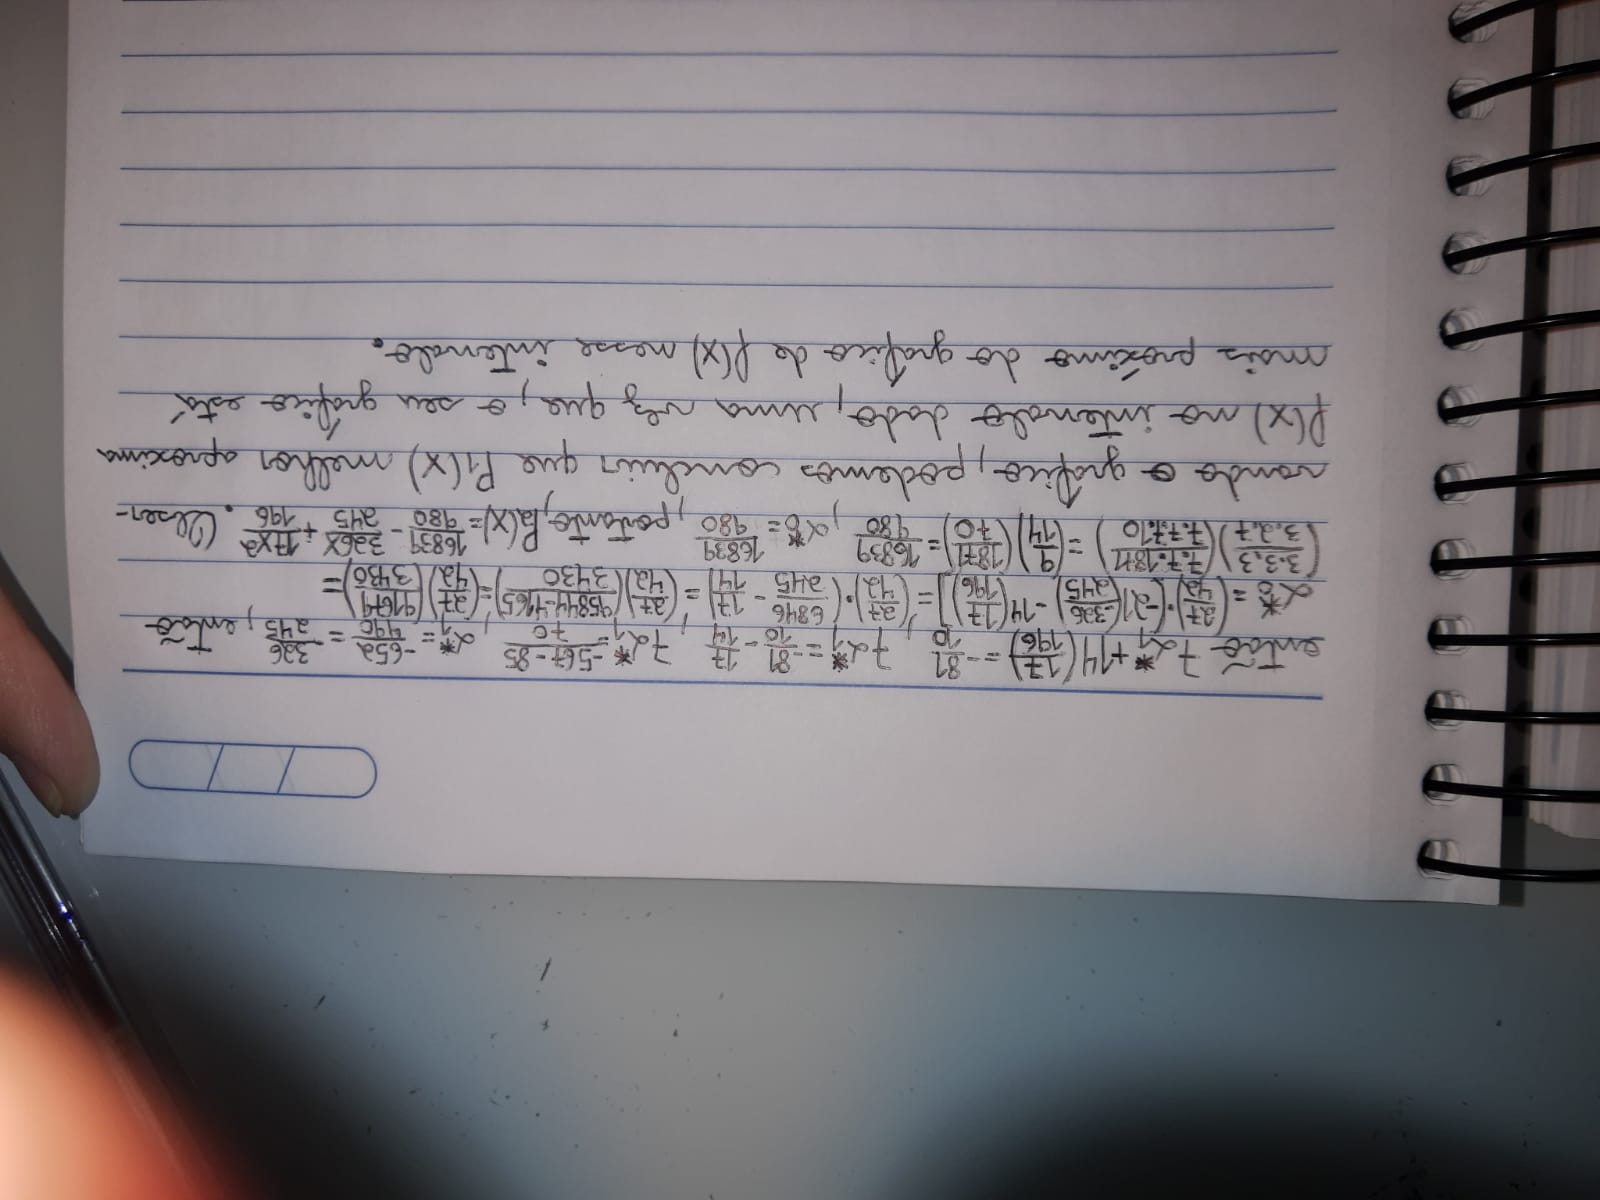 então 7α₁*+14(17/196) = -81/10, 7α₁* = -81/10 - 17/14, 7α₁* = (-567-85)/70, α₁* = -652/490 = -326/245, então
α₀* = (27/42)·[-21(-326/245) - 14(17/196)] = (27/42)·(6846/245 - 17/14) = (27/42)((95844-4165)/3430) = (27/42)(91679/3430) =
(3.3.3/3.2.7)(7.7.1871/7.7.7.10) = (9/14)(1871/70) = 16839/980, α₀* = 16839/980, portanto, P₂(x) = 16839/980 - 326x/245 + 17x²/196. Obser-
vando o gráfico, podemos concluir que P₁(x) melhor aproxima
f(x) no intervalo dado, uma vez que, o seu gráfico está
mais próximo do gráfico de f(x) nesse intervalo.